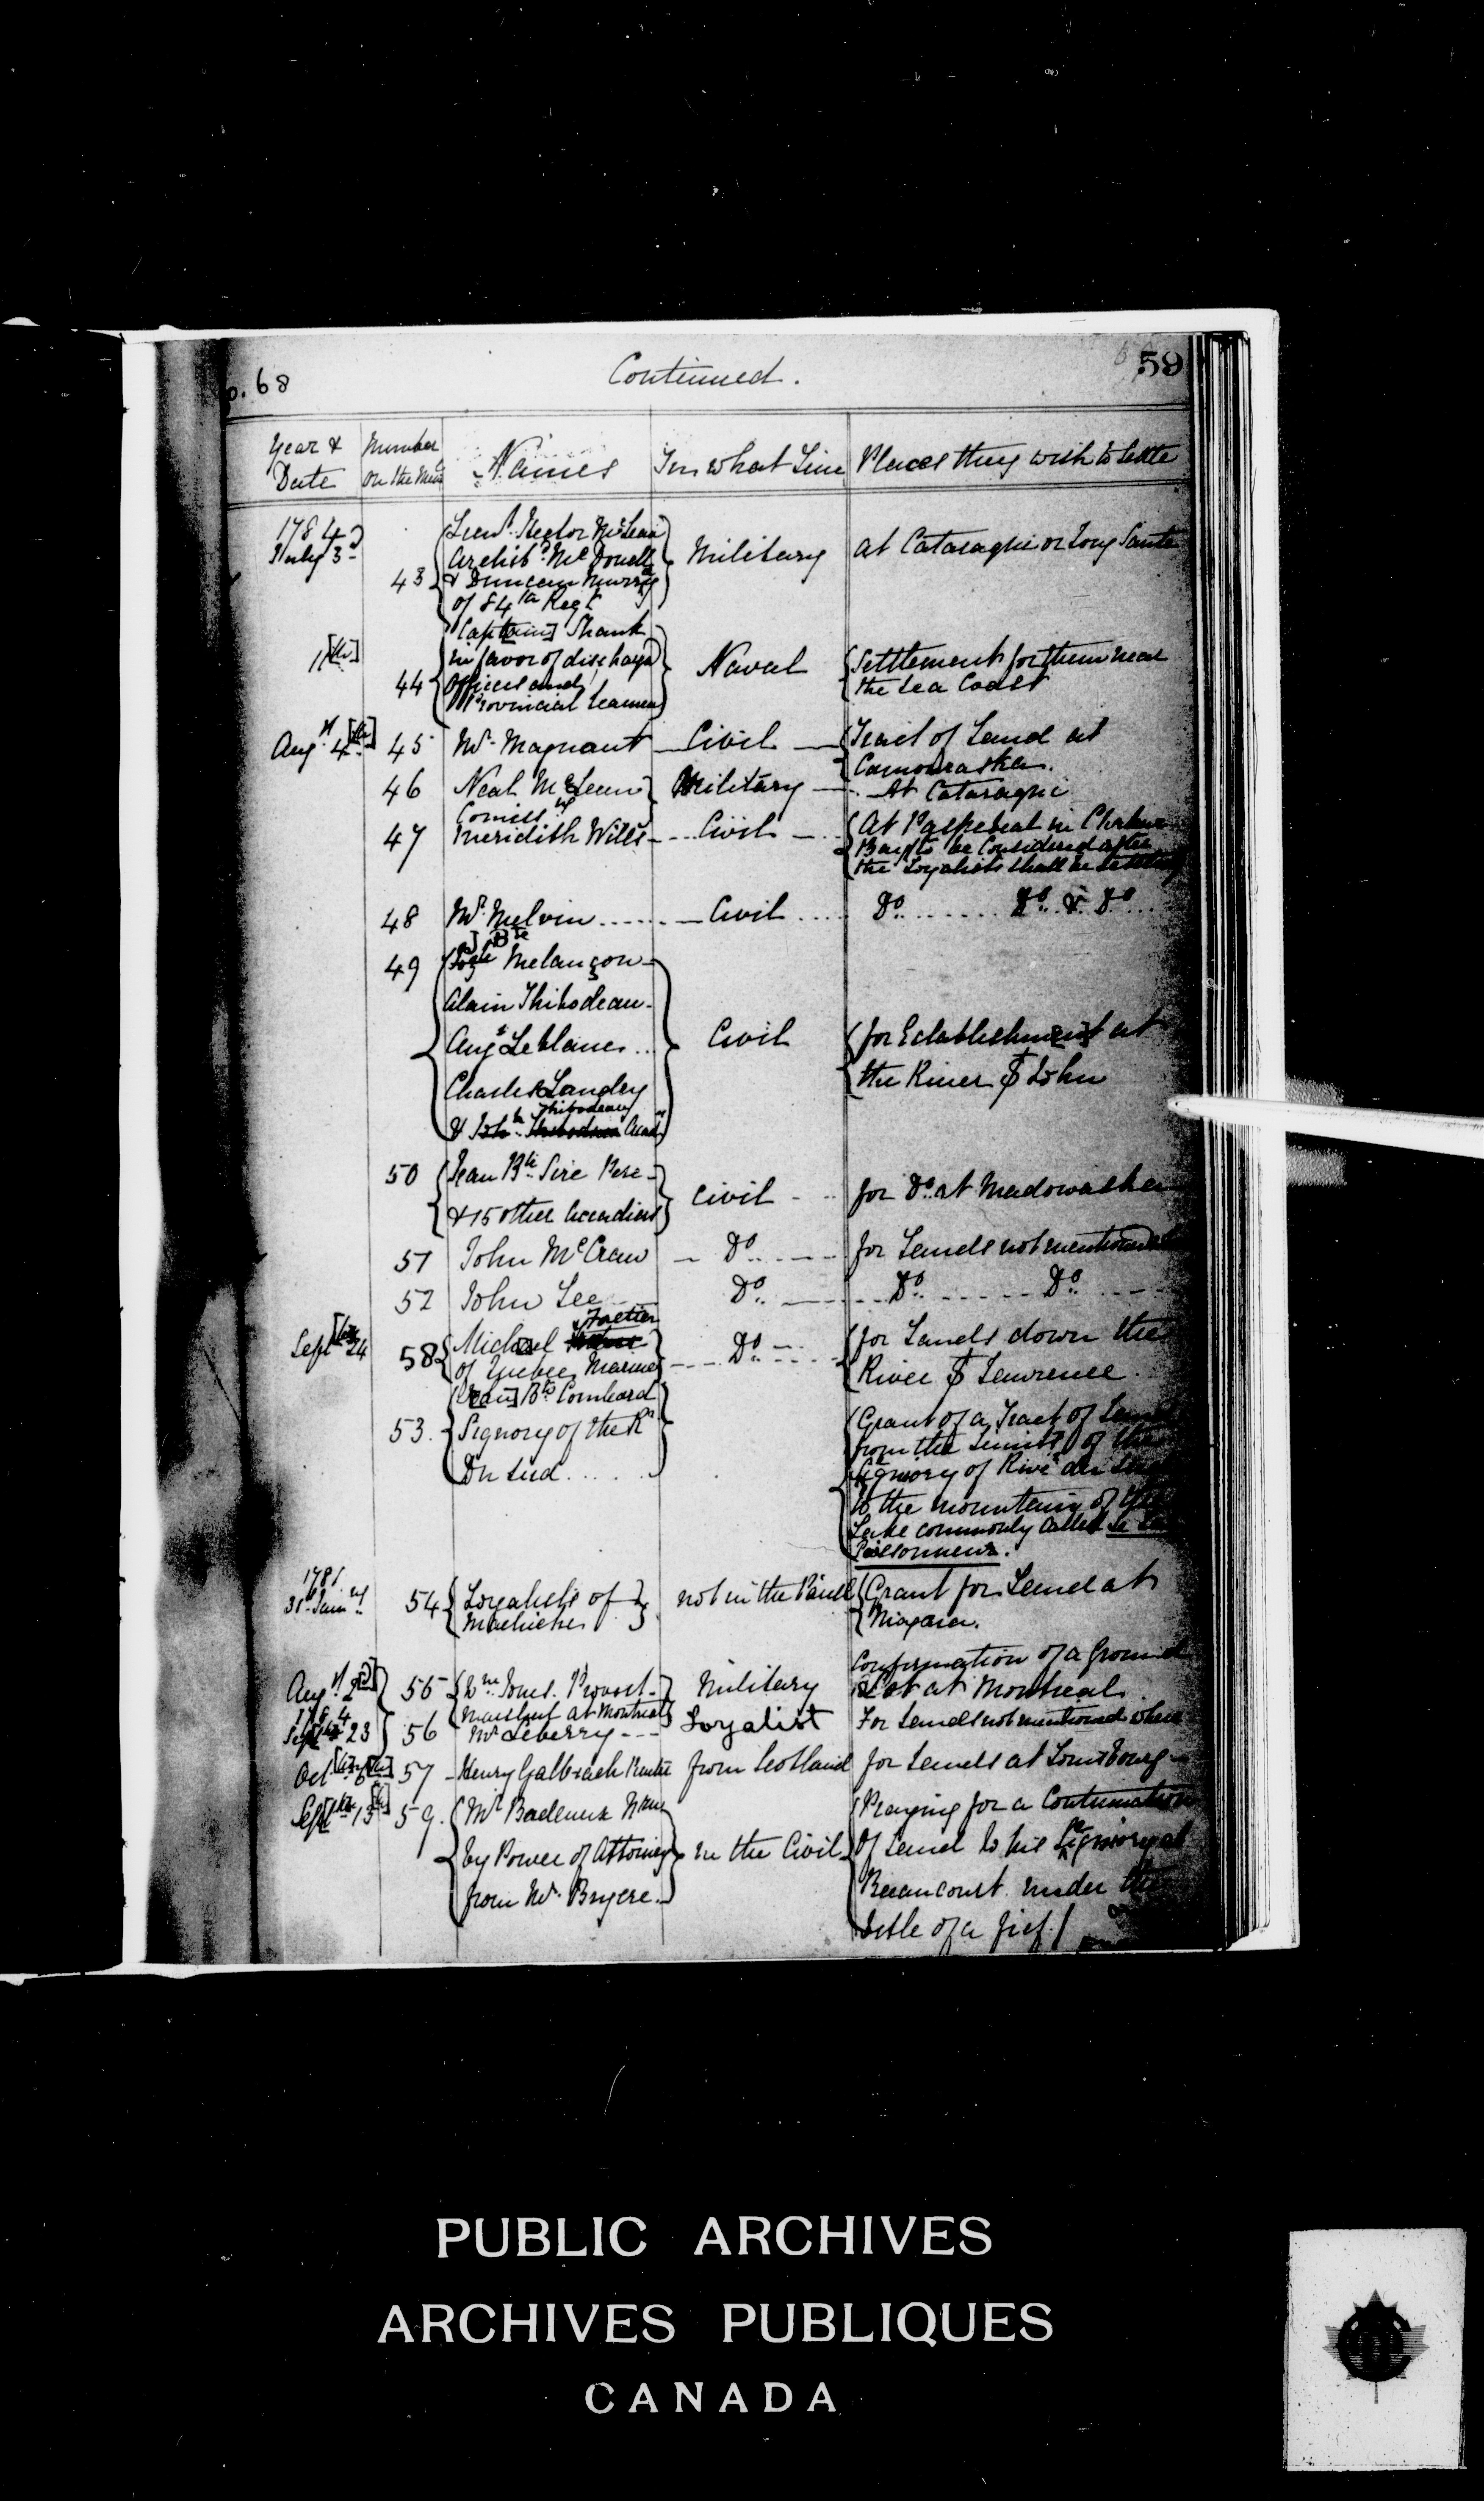 p. 68
Continued.
59
Year & Date
Number on the
Names
In what Line
Places they wish to Settle
1784
July 3d
43
Lieut. Hector McLean
Archibd McDonell
& Duncan Murray
of 84th Regt
Military
at Cataraqui or Long Sault
11[th]
44
Capt[ain] Shank
in favor of discharged
Officers and
Provincial Seamen
Naval
Settlement for them near
the Sea Coast
Augst 4[th]
45
Mr. Magnant
Civil
Tract of Land at
Camouraska.
46
Neal McLean
Military
At Cataraqui
47
Comissry
Meridith Wills
Civil
At Paspebiat in Chaleur
Bay to be Considered after
the Loyalists shall be settled
48
Mr. Melvin
Civil
Do Do & Do
49
J. Bte
Melançon
Alain Thibodeau
Augt Leblanc
Charles Landry
Thibodeau
&
Civil
for Establishment at
the River St John
50
Jean Bte Sire Pere
& 15 other Accadians
Civil
for Do at Madowaska
51
John McCraw
Do
for Lands not mentioned
52
John Lee
Do
Do Do
Sept[ber] 24
58
Fortier
Michael
of Quebec Mariner
Do
for Lands down the
River St Lawrence
53.
[Jean] Bte Combard
Signory of the Rr
Du Sud
Grant of a Tract of
from the Limits of the
Signiory of Rive du
to the mountains of the
Lake commonly called
Poissonneux.
1781
31st Janry
54
Loyalists of
Machiche
not in the Pånell
Grant for Land at
Niagara.
Augst 2[d]
55
Wm Jones. Provost
Marshal at Montreal
Military
Confirmation of a Ground
Lot at Montreal
1784
Sept[ber] 23
56
Mr Leberry
Loyalist
For Lands not mentioned where
Oct[ber] 6[th]
57
Henry Galbrach
from Scotland
for Lands at Louisbourg
Sept[ber] 13[th]
59.
Mr Badeaux
by Power of Attorney
from Mr. Bryere
in the Civil
Praying for a Continuation
of Land to his Signiory at
Becancourt under the
title of a fief.
PUBLIC ARCHIVES
ARCHIVES PUBLIQUES
CANADA